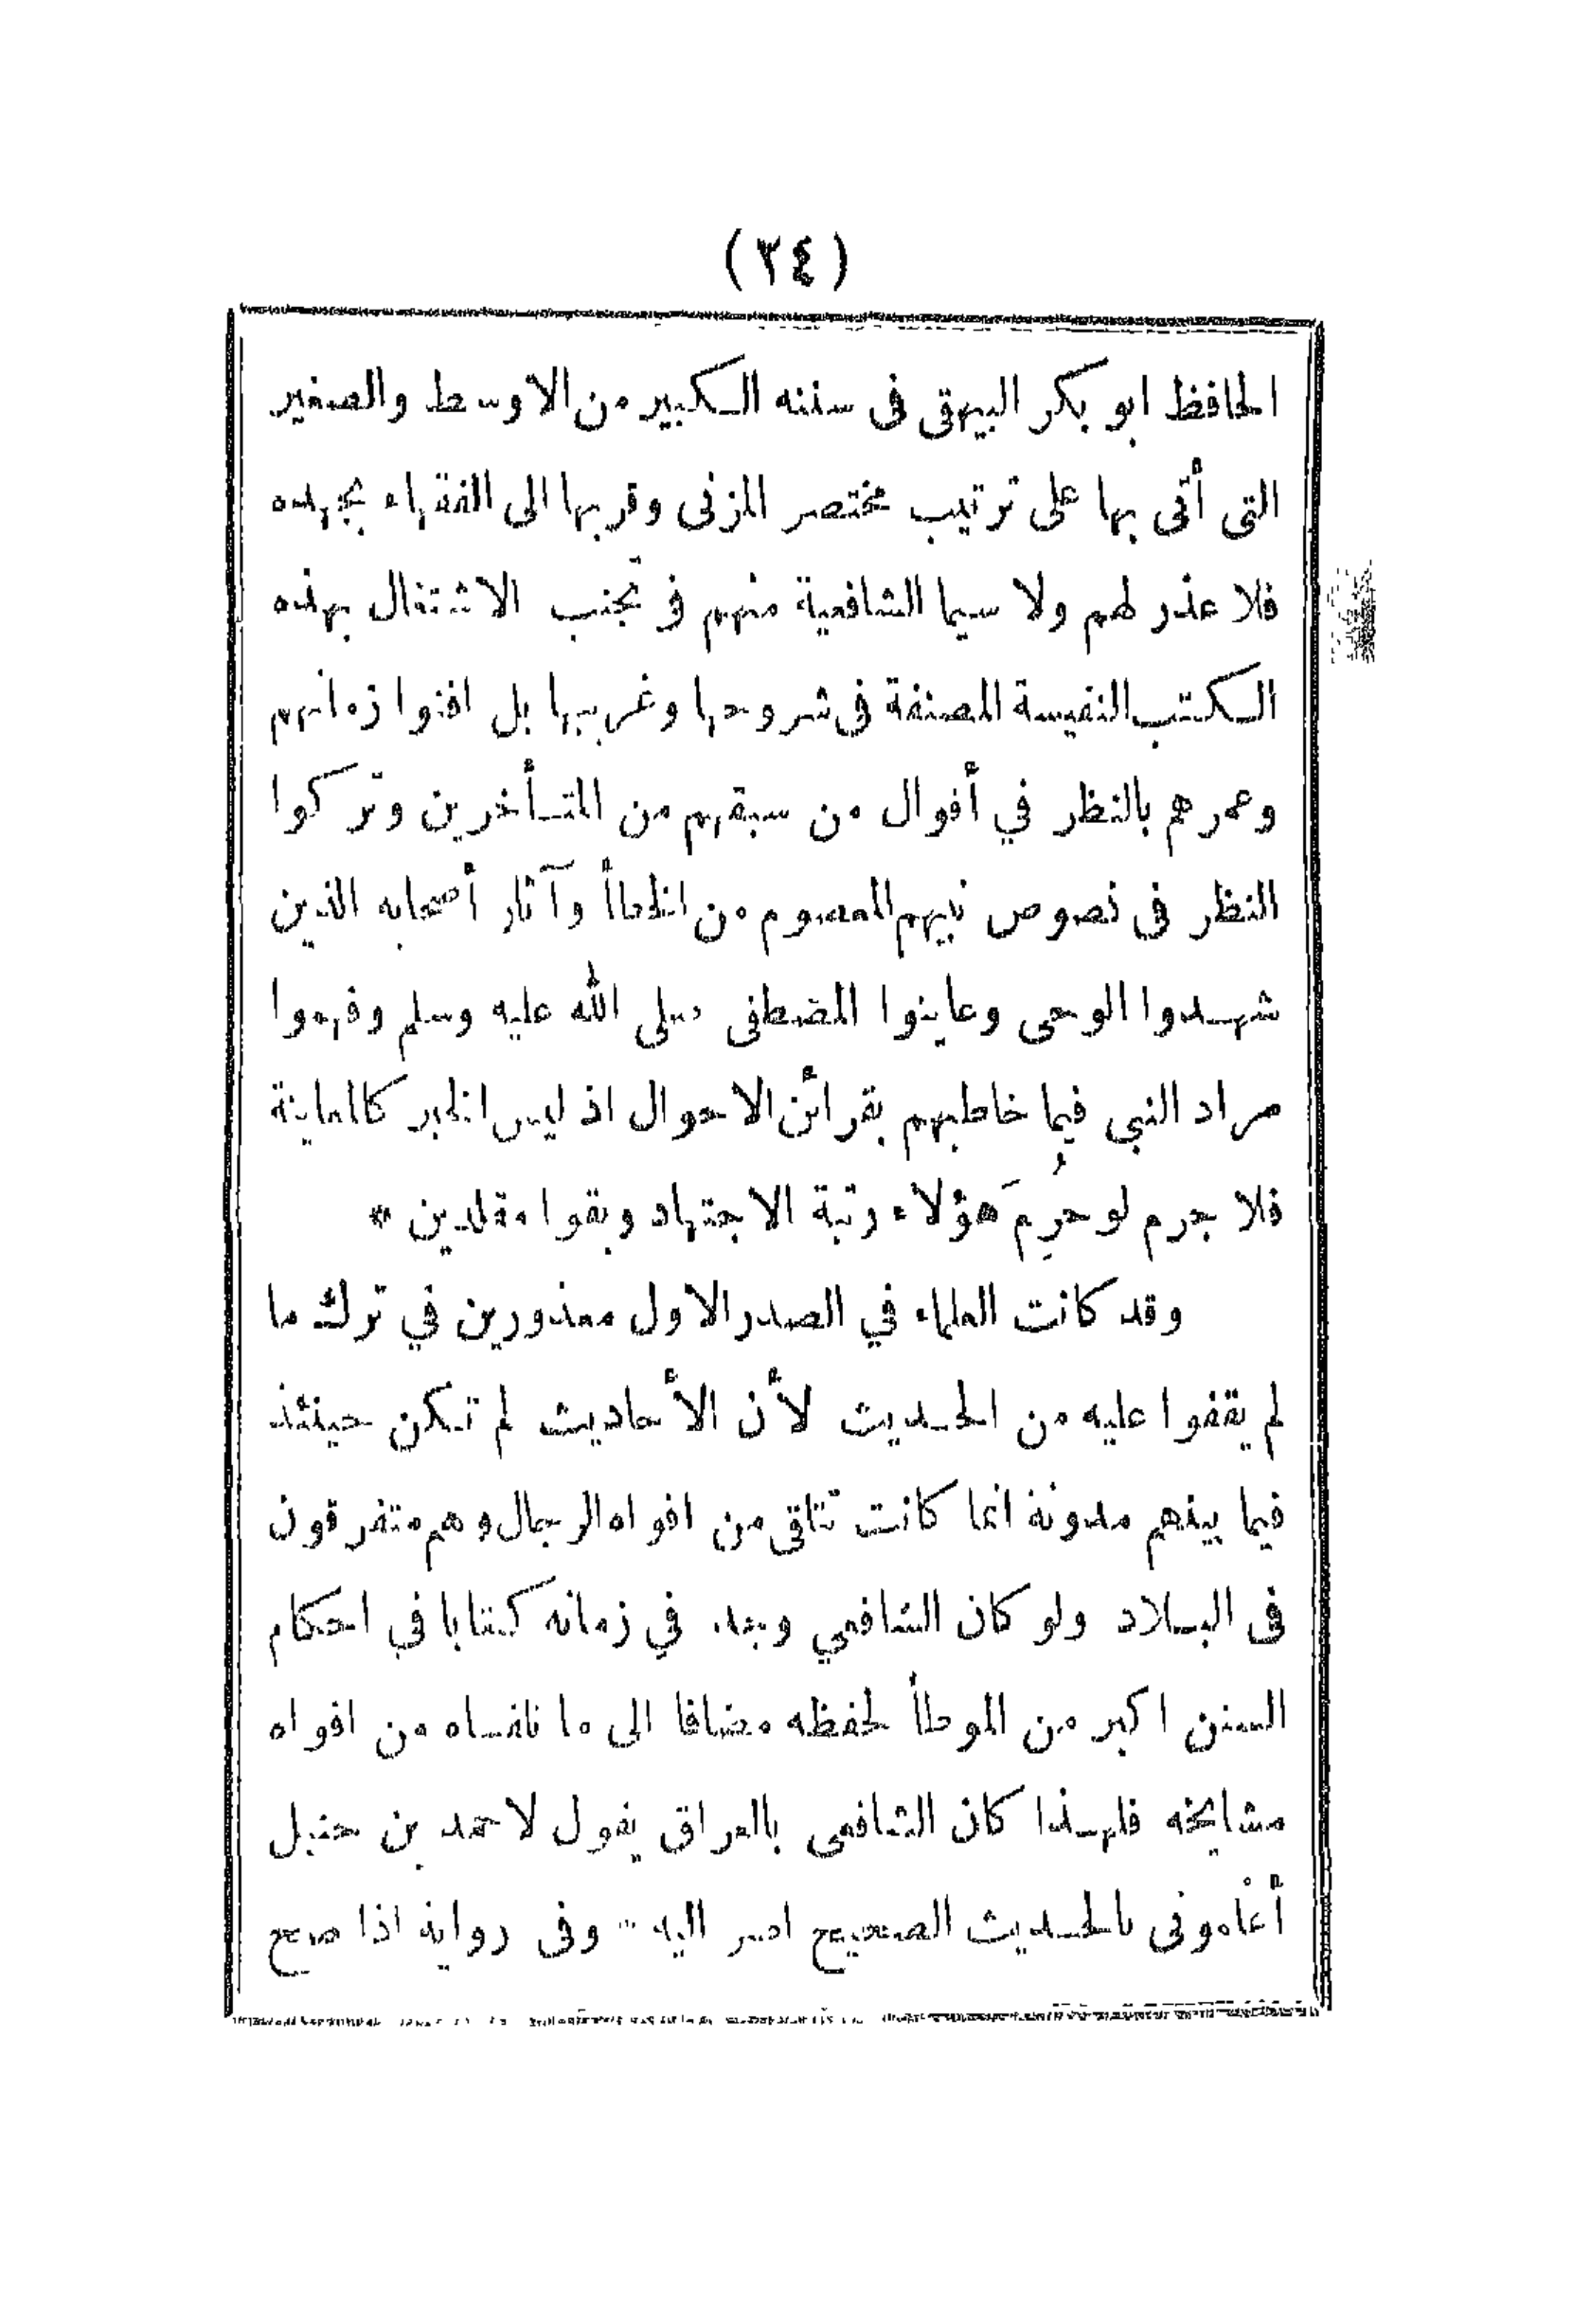 (٣٤)
الحافظ ابو بكر البيهقى فى سننه الكبير من الاوسط والصغير
التى أتى بها على ترتيب مختصر المزنى وقربها الى الفقهاء بجهده
فلا عذر لهم ولا سيما الشافعية منهم فى تجنب الاشتغال بهذه
الكتب النفيسة المصنفة فى شروحها وغريبها بل افنوا زمانهم
وعمرهم بالنظر في أقوال من سبقهم من المتأخرين وتركوا
النظر فى نصوص نبيهم المعصوم من الخطأ وآثار أصحابه الذين
شهدوا الوحى وعاينوا المصطفى صلى الله عليه وسلم وفهموا
مراد النبي فيما خاطبهم بقرائن الاحوال اذ ليس الخبر كالمعاينة
فلا جرم لو حُرِمَ هؤلاء رتبة الاجتهاد وبقوا مقلدين *
وقد كانت العلماء في الصدر الاول معذورين في ترك ما
لم يقفوا عليه من الحديث لأن الأحاديث لم تكن حينئذ
فيما بينهم مدونة انما كانت تتلقى من افواه الرجال وهم متفرقون
فى البلاد ولو كان الشافعي وجد في زمانه كتابا في احكام
السنن اكبر من الموطأ لحفظه مضافا الى ما تلقاه من افواه
مشايخه فلهذا كان الشافعى بالعراق يقول لاحمد بن حنبل
أعْلمونى بالحديث الصحيح اصر اليه وفى رواية اذا صح